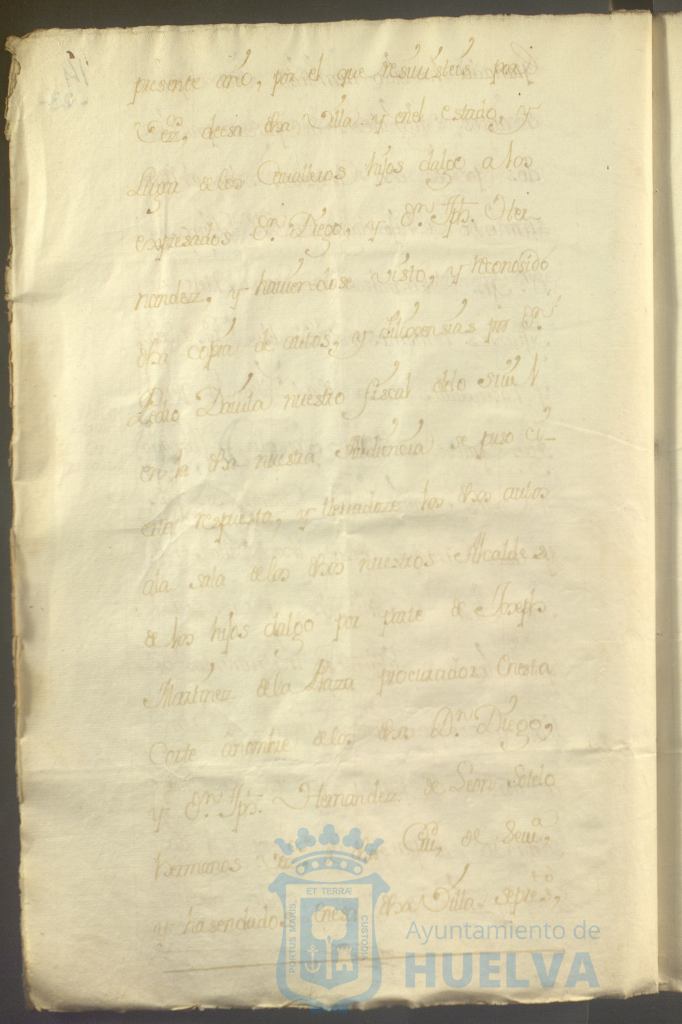 presente año, por el que resivisteis por
Vezº, de esa dha Villa y en el estado, y
Lugar de los Cavalleros hijos dalgo a los
expresados Dn. Diego, y Dn. Jph. Her-
nandez. y haviendose visto, y reconosido
dha copia de autos, y dilixensias por Dn.
Pedro Davila nuestro fiscal delo Sivil
en la dha nuestra Audiencia se puso ci-
respuesta, y llevadose los dhos autos
ala sala delos dhos nuestros Alcaldes
de los hijos dalgo por parte de Joseph
Martinez de la Plaza procurador en esta
Corte en nombre delos dhos Dn. Diego,
y Dn. Jph. Hernandez de Leon Sotelo
hermanos de Seuª,
y hasendado, en esa dha Villa
ET TERRÆ
PORTUS MARIS
CUSTODIA
Ayuntamiento de
HUELVA